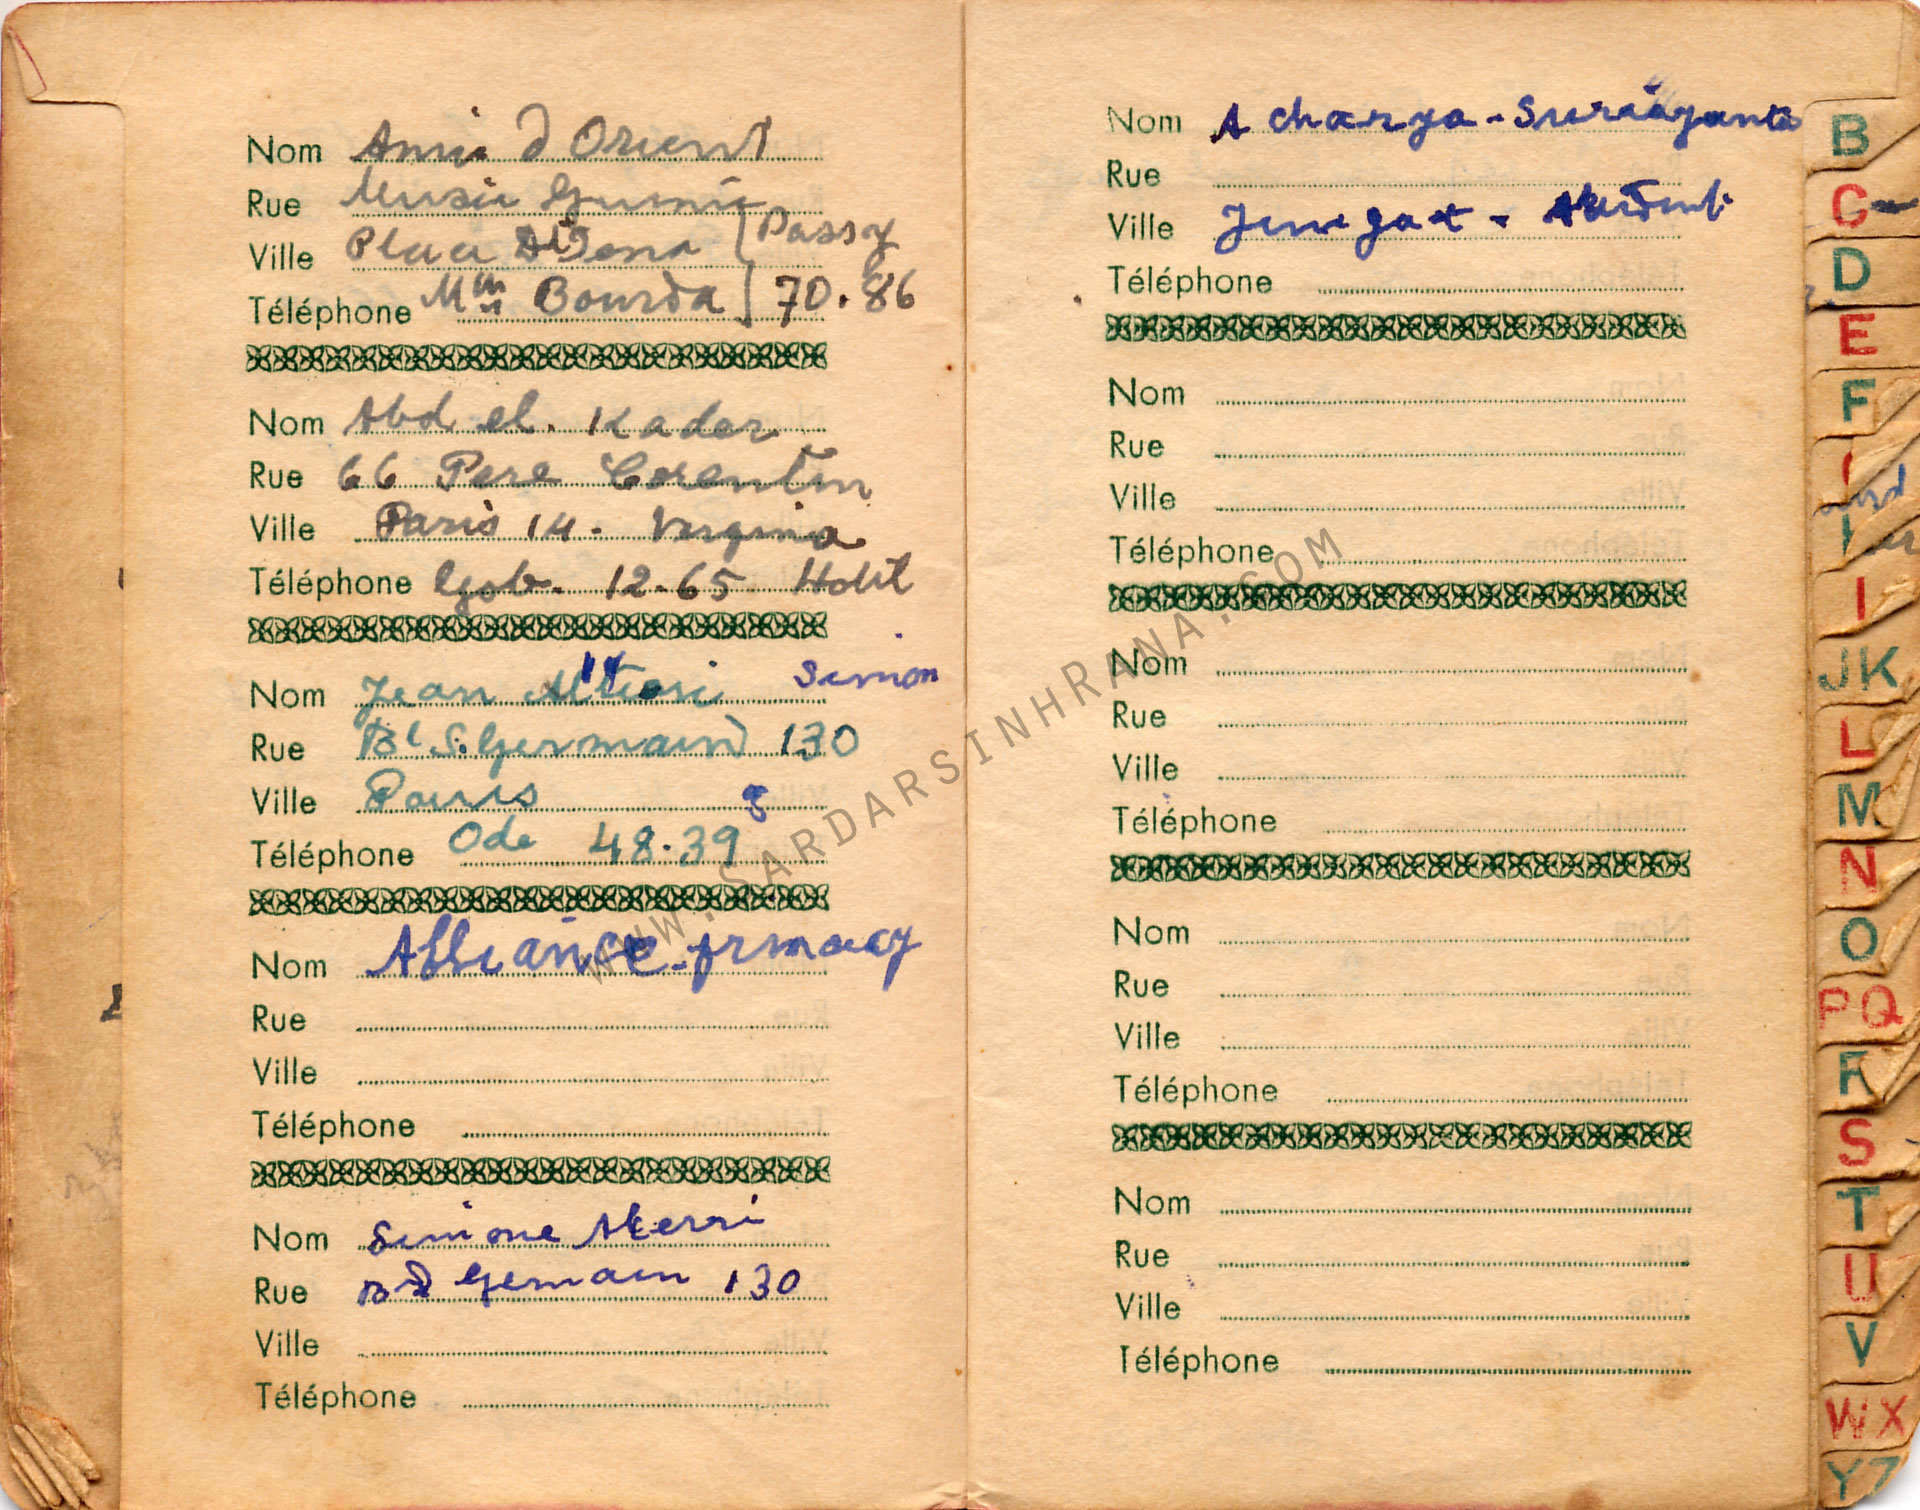 Nom Amis d Orient
Rue Musée Guimé
Ville Place D'Iena Passy
Téléphone Mme Bourda 70.86
Nom Abd el. Kader
Rue 66 Pere Corentin
Ville Paris 14. Virginia
Téléphone Gob. 12.65 Hotel
Nom Jean Simon
Rue Bd S. Germain 130
Ville Paris
Téléphone Ode 48.39
Nom Alliance
Rue
Ville
Téléphone
Nom Simone
Rue Bd Germain 130
Ville
Téléphone
Nom Acharya -
Rue
Ville
Téléphone
Nom
Rue
Ville
Téléphone
Nom
Rue
Ville
Téléphone
Nom
Rue
Ville
Téléphone
Nom
Rue
Ville
Téléphone
B
C
D
E
F
I
JK
L
M
N
O
PQ
R
S
T
U
V
WX
YZ
WWW.SARDARSINHRANA.COM